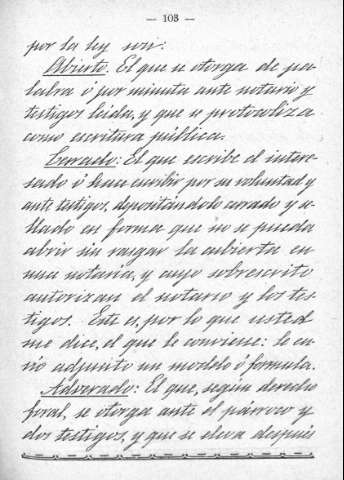 — 103 —
por la ley son:
Abierto. El que se otorga de pa-
labra ó por minuta ante notario y
testigos leida, y que se protocoliza
como escritura pública.
Cerrado: El que escribe el intere-
sado ó hace escribir por su voluntad y
ante testigos, depositándolo cerrado y se-
llado en forma que no se pueda
abrir sin rasgar la cubierta en
una notaria, y cuyo sobrescrito
autorizan el notario y los tes-
tigos. Este es, por lo que usted
me dice, el que le conviene: le en-
vio adjunto un modelo ó fórmula.
Adverado: El que, según derecho
foral, se otorga ante el párroco y
dos testigos, y que se eleva después